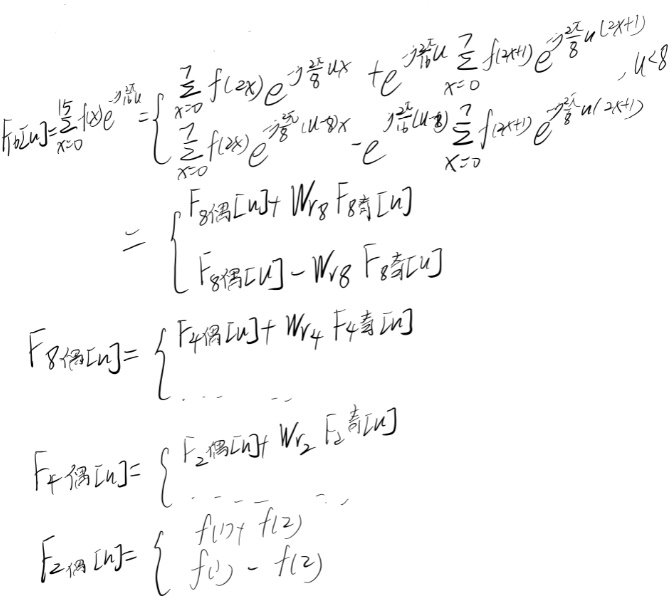 F₁₆[u]=∑_{x=0}^{15} f(x)e^{-j\frac{2π}{16}u} = { ∑_{x=0}^{7} f(2x) e^{-j\frac{2π}{8}ux} + e^{-j\frac{2π}{16}u} ∑_{x=0}^{7} f(2x+1) e^{-j\frac{2π}{8}u(2x+1)} , u<8
∑_{x=0}^{7} f(2x) e^{-j\frac{2π}{8}(u-8)x} - e^{-j\frac{2π}{16}(u-8)} ∑_{x=0}^{7} f(2x+1) e^{-j\frac{2π}{8}u(2x+1)}
= { F₈偶[u]+ Wr₈ F₈奇[u]
F₈偶[u] - Wr₈ F₈奇[u]
F₈偶[u]= { F₄偶[u]+ Wr₄ F₄奇[u]
. . . . . .
F₄偶[u]= { F₂偶[u]+ Wr₂ F₂奇[u]
. . . . . .
F₂偶[u]= { f(1)+ f(2)
f(1) - f(2)